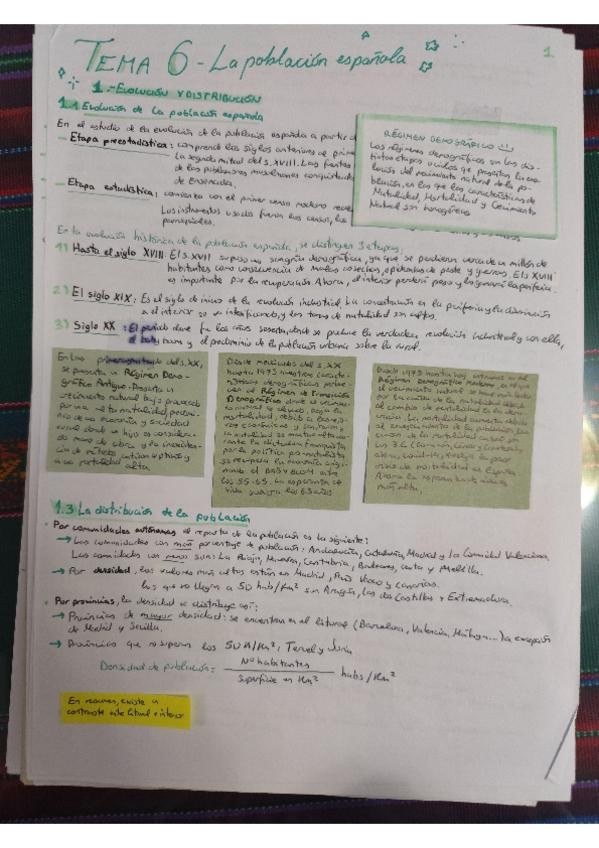 TEMA 6 - La población española
1
1.- EVOLUCIÓN Y DISTRIBUCIÓN
1.1 Evolución de la población española
En el estudio de la evolución de la población española a partir d
- Etapa preestadística: comprende los siglos anteriores al prime
la segunda mitad del s. XVIII. Las fuentes
de las poblaciones musulmanas conquistada
de Ensenada,
- Etapa estadística: comienza con el primer censo moderno
Los instrumentos usados fueron los censos, los
principales.
RÉGIMEN DEMOGRÁFICO
Los regímenes demográficos son las dis-
tintas etapas o ciclos que presentan la evo-
lución del crecimiento natural de la po-
blación, en los que las características de
Natalidad, Mortalidad y Crecimiento
Natural son homogéneas
En la evolución histórica de la población española, se distinguen 3 etapas:
1) Hasta el siglo XVIII: El s. XVII supuso una sangría demográfica, ya que se perdieron cerca de un millón de
habitantes como consecuencia de malas cosechas, epidemias de peste y guerras. El s XVIII
es importante por la recuperación. Ahora, el interior perderá peso y lo ganará la periferia.
2) El siglo XIX: Es el siglo de inicio de la revolución industrial. La concentración en la periferia y la disminución
en el interior se va intensificando, y las tasas de natalidad son altas.
3) Siglo XX: El periodo clave fue los años sesenta, donde se produce la verdadera revolución industrial y con ella,
el baby boom y el predominio de la población urbana sobre la rural.
En la primera mitad del s. XX,
se presenta un Régimen Demo-
gráfico Antiguo. Presenta un
crecimiento natural bajo provocado
por una alta natalidad, predomi-
nio de una economía y sociedad
rural donde un hijo es considera-
do mano de obra y la inexisten-
cia de métodos anticonceptivos y
una mortalidad alta.
Desde mediados del s. XX
hasta 1975 nuestras caracte-
rísticas demográficas perte-
necen al Régimen de Transición
Demográfica
la dictadura franquista
por la política pro-natalista
el BABY BOOM entre
los 55-65. La esperanza de
vida
Desde 1975 hasta hoy entramos en el
Régimen Demográfico Moderno, en el que
el crecimiento natural se ha reducido
por la caída de la natalidad debido
al cambio de mentalidad
La mortalidad aumenta debido
al envejecimiento de la población. Las
causas de mortalidad actual son
las 3 C (Corazón, Cáncer y Carretera),
Covid-19,
Ahora la esperanza de vida es
muy alta.
1.3 La distribución de la población
• Por comunidades autónomas el reparto de la población es la siguiente:
→ Las comunidades con más porcentaje de población: Andalucía, Cataluña, Madrid y la Comunidad Valenciana.
Las comunidades con menos son: La Rioja, Navarra, Cantabria, Baleares, Ceuta y Melilla.
→ Por densidad, los valores más altos están en Madrid, País Vasco y Canarias.
Los que no llegan a 50 hab/km² son Aragón, las dos Castillas y Extremadura.
• Por provincias, la densidad se distribuye así:
→ Provincias de mayor densidad: se encuentran en el litoral (Barcelona, Valencia, Málaga...) a excepción
de Madrid y Sevilla.
→ Provincias que no superan los H/Km²: Teruel y Soria
Densidad de población = Nº habitantes / Superficie en Km² habs/Km²
En resumen, existe un
contraste entre litoral e interior